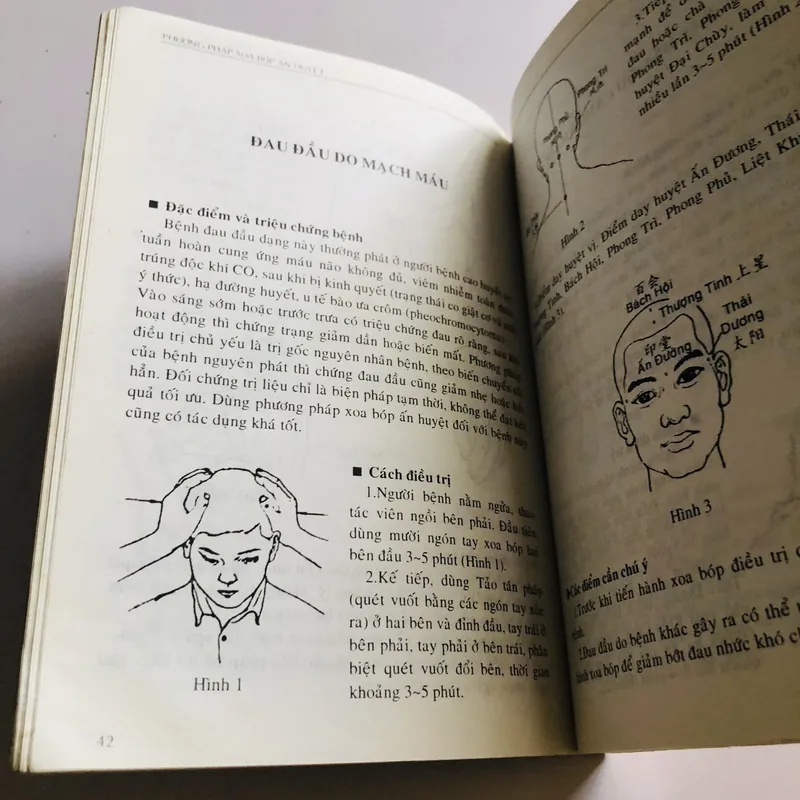 PHƯƠNG PHÁP XOA BÓP ẤN HUYỆT
ĐAU ĐẦU DO MẠCH MÁU
■ Đặc điểm và triệu chứng bệnh
Bệnh đau đầu dạng này thường phát ở người bệnh cao huyết áp,
tuần hoàn cung ứng máu não không đủ, viêm nhiễm toàn thân,
trúng độc khí CO, sau khi bị kinh quyết (trạng thái co giật cơ và mất
ý thức), hạ đường huyết, u tế bào ưa crôm (pheochromocytoma)
Vào sáng sớm hoặc trước trưa có triệu chứng đau rõ ràng, sau khi
hoạt động thì chứng trạng giảm dần hoặc biến mất. Phương pháp
điều trị chủ yếu là trị gốc nguyên nhân bệnh, theo biến chuyển
của bệnh nguyên phát thì chứng đau đầu cũng giảm nhẹ hoặc
hẳn. Đối chứng trị liệu chỉ là biện pháp tạm thời, không thể đạt
quả tối ưu. Dùng phương pháp xoa bóp ấn huyệt đối với bệnh này
cũng có tác dụng khá tốt.
■ Cách điều trị
1.Người bệnh nằm ngửa, thao
tác viên ngồi bên phải. Đầu tiên
dùng mười ngón tay xoa bóp hai
bên đầu 3~5 phút (Hình 1).
2.Kế tiếp, dùng Tảo tán pháp
(quét vuốt bằng các ngón tay xòe
ra) ở hai bên và đỉnh đầu, tay trái ở
bên phải, tay phải ở bên trái, phân
biệt quét vuốt đổi bên, thời gian
khoảng 3~5 phút.
Hình 1
42
3.Tiếp
mạnh để
đau hoặc chà
Phong Trì, Phong
huyệt Đại Chùy, làm
nhiều lần 3~5 phút (Hình
Phong Trì
Phong Phủ
Hình 2
Điểm day huyệt vị. Điểm day huyệt Ấn Đương, Thái
Tinh, Bách Hội, Phong Trì, Phong Phủ, Liệt
Hình 3).
百会
Bách Hội
Thượng Tinh 上星
印堂
Ấn Đường
Thái
Dương
太阳
Hình 3
Các điểm cần chú ý
1.Trước khi tiến hành xoa bóp điều trị
bệnh.
2.Đau đầu do bệnh khác gây ra có thể
hành xoa bóp để giảm bớt đau nhức khó